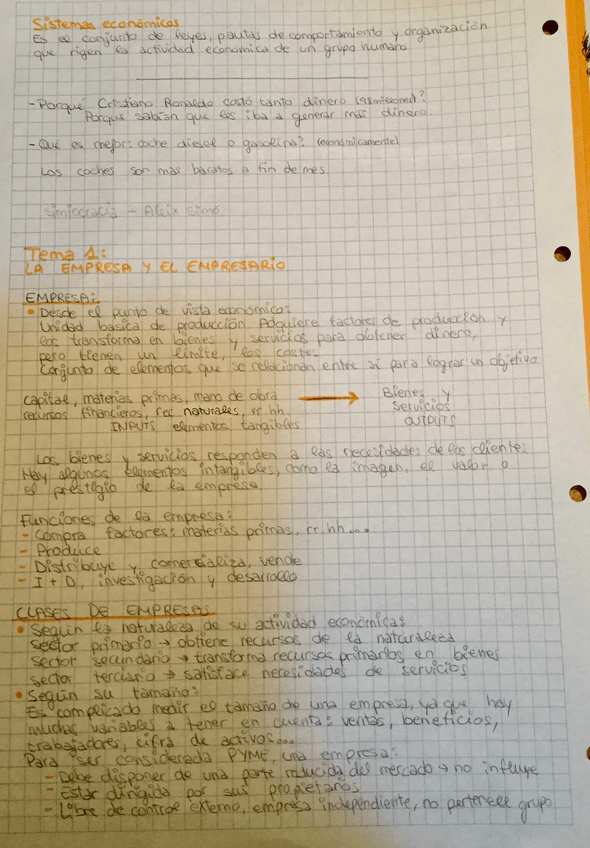 Sistemas económicos
Es el conjunto de leyes, pautas de comportamiento y organización
que rigen la actividad económica de un grupo humano
- Porqué Cristiano Ronaldo costó tanto dinero (98millones)?
Porque sabían que les iba a generar más dinero.
- Qué es mejor: coche diesel o gasolina? (económicamente)
Los coches son más baratos a fin de mes
Simiocracia - Aleix Saló
Tema 1:
LA EMPRESA Y EL EMPRESARIO
EMPRESA:
• Desde el punto de vista económico:
Unidad basica de producción. Adquiere factores de producción y
los transforma en bienes y servicios para obtener dinero,
pero tienen un límite, los costes
Conjunto de elementos que se relacionan entre sí para lograr un objetivo
Capital, materias primas, mano de obra → Bienes y
recursos financieros, rec naturales, rr.hh. Servicios
INPUTS elementos tangibles OUTPUTS
Los bienes y servicios responden a las necesidades de los clientes
Hay algunos elementos intangibles, como la imagen, el valor o
el prestigio de la empresa
Funciones de la empresa:
- Compra factores: materias primas, rr.hh....
- Produce
- Distribuye y comercializa, vende
- I + D, investigación y desarrollo
CLASES DE EMPRESAS
• Según la naturaleza de su actividad económica:
Sector primario → obtiene recursos de la naturaleza
Sector secundario → transforma recursos primarios en bienes
Sector terciario → satisface necesidades de servicios
• Según su tamaño:
Es complicado medir el tamaño de una empresa, ya que hay
muchas variables a tener en cuenta: ventas, beneficios,
trabajadores, cifra de activos...
Para ser considerada PYME, una empresa:
- Debe disponer de una parte reducida del mercado → no influye
- Estar dirigida por sus propietarios
- Libre de control externo, empresa independiente, no pertenece grupo